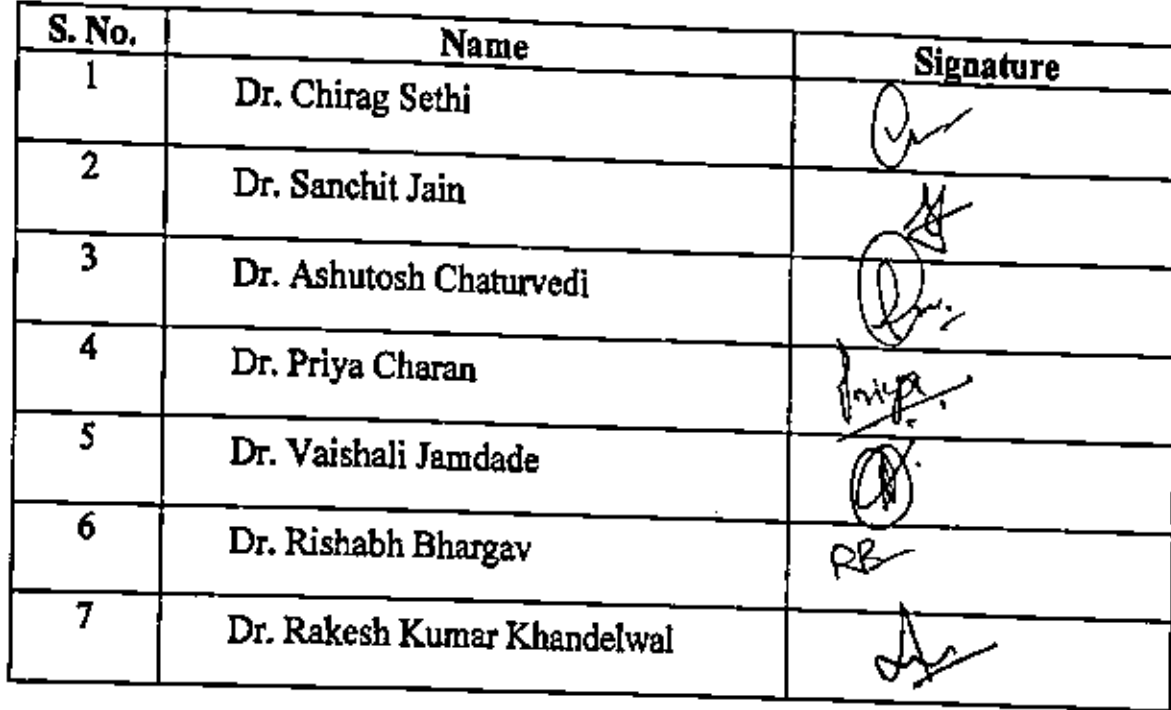 S. No. Name Signature
1 Dr. Chirag Sethi
2 Dr. Sanchit Jain
3 Dr. Ashutosh Chaturvedi
4 Dr. Priya Charan Priya
5 Dr. Vaishali Jamdade
6 Dr. Rishabh Bhargav RB
7 Dr. Rakesh Kumar Khandelwal